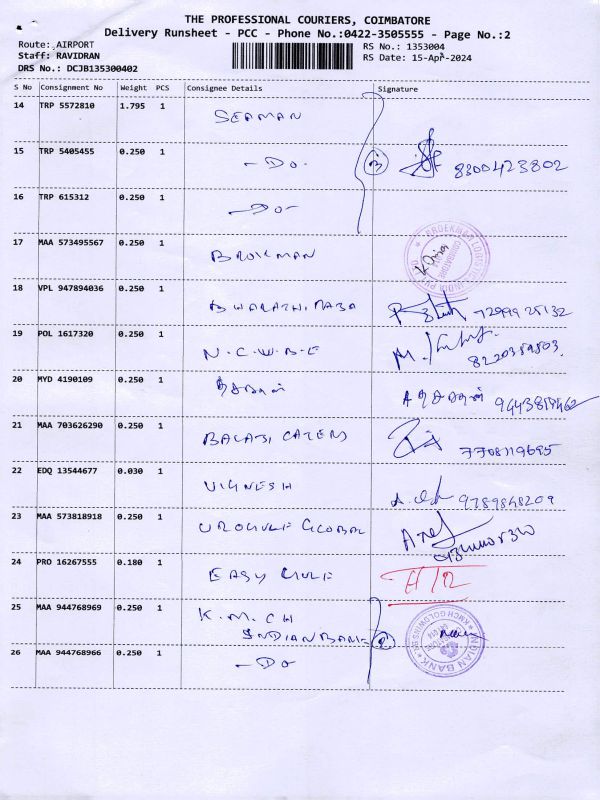 THE PROFESSIONAL COURIERS, COIMBATORE
Delivery Runsheet - PCC - Phone No.:0422-3505555 - Page No.:2
Route: AIRPORT
RS No.: 1353004
Staff: RAVIDRAN
RS Date: 15-Apr-2024
DRS No.: DCJB135300402
S No Consignment No Weight PCS Consignee Details Signature
14 TRP 5572810 1.795 1 SEAMAN
15 TRP 5405455 0.250 1 - Do - 3 8300423802
16 TRP 615312 0.250 1 - Do -
17 MAA 573495567 0.250 1 BROEKMAN
18 VPL 947894036 0.250 1 BHARATHI RAJA
19 POL 1617320 0.250 1 N.C.W.B.E
20 MYD 4190109 0.250 1
21 MAA 703626290 0.250 1 BALAJI CATERS 7708119695
22 EDQ 13544677 0.030 1 VIGNESH 9789848209
23 MAA 573818918 0.250 1 UROGULF GLOBAL
24 PRO 16267555 0.180 1 EASY GULF
25 MAA 944768969 0.250 1 K.M.C.H
INDIAN BANK 2 INDIAN BANK
26 MAA 944768966 0.250 1 - Do